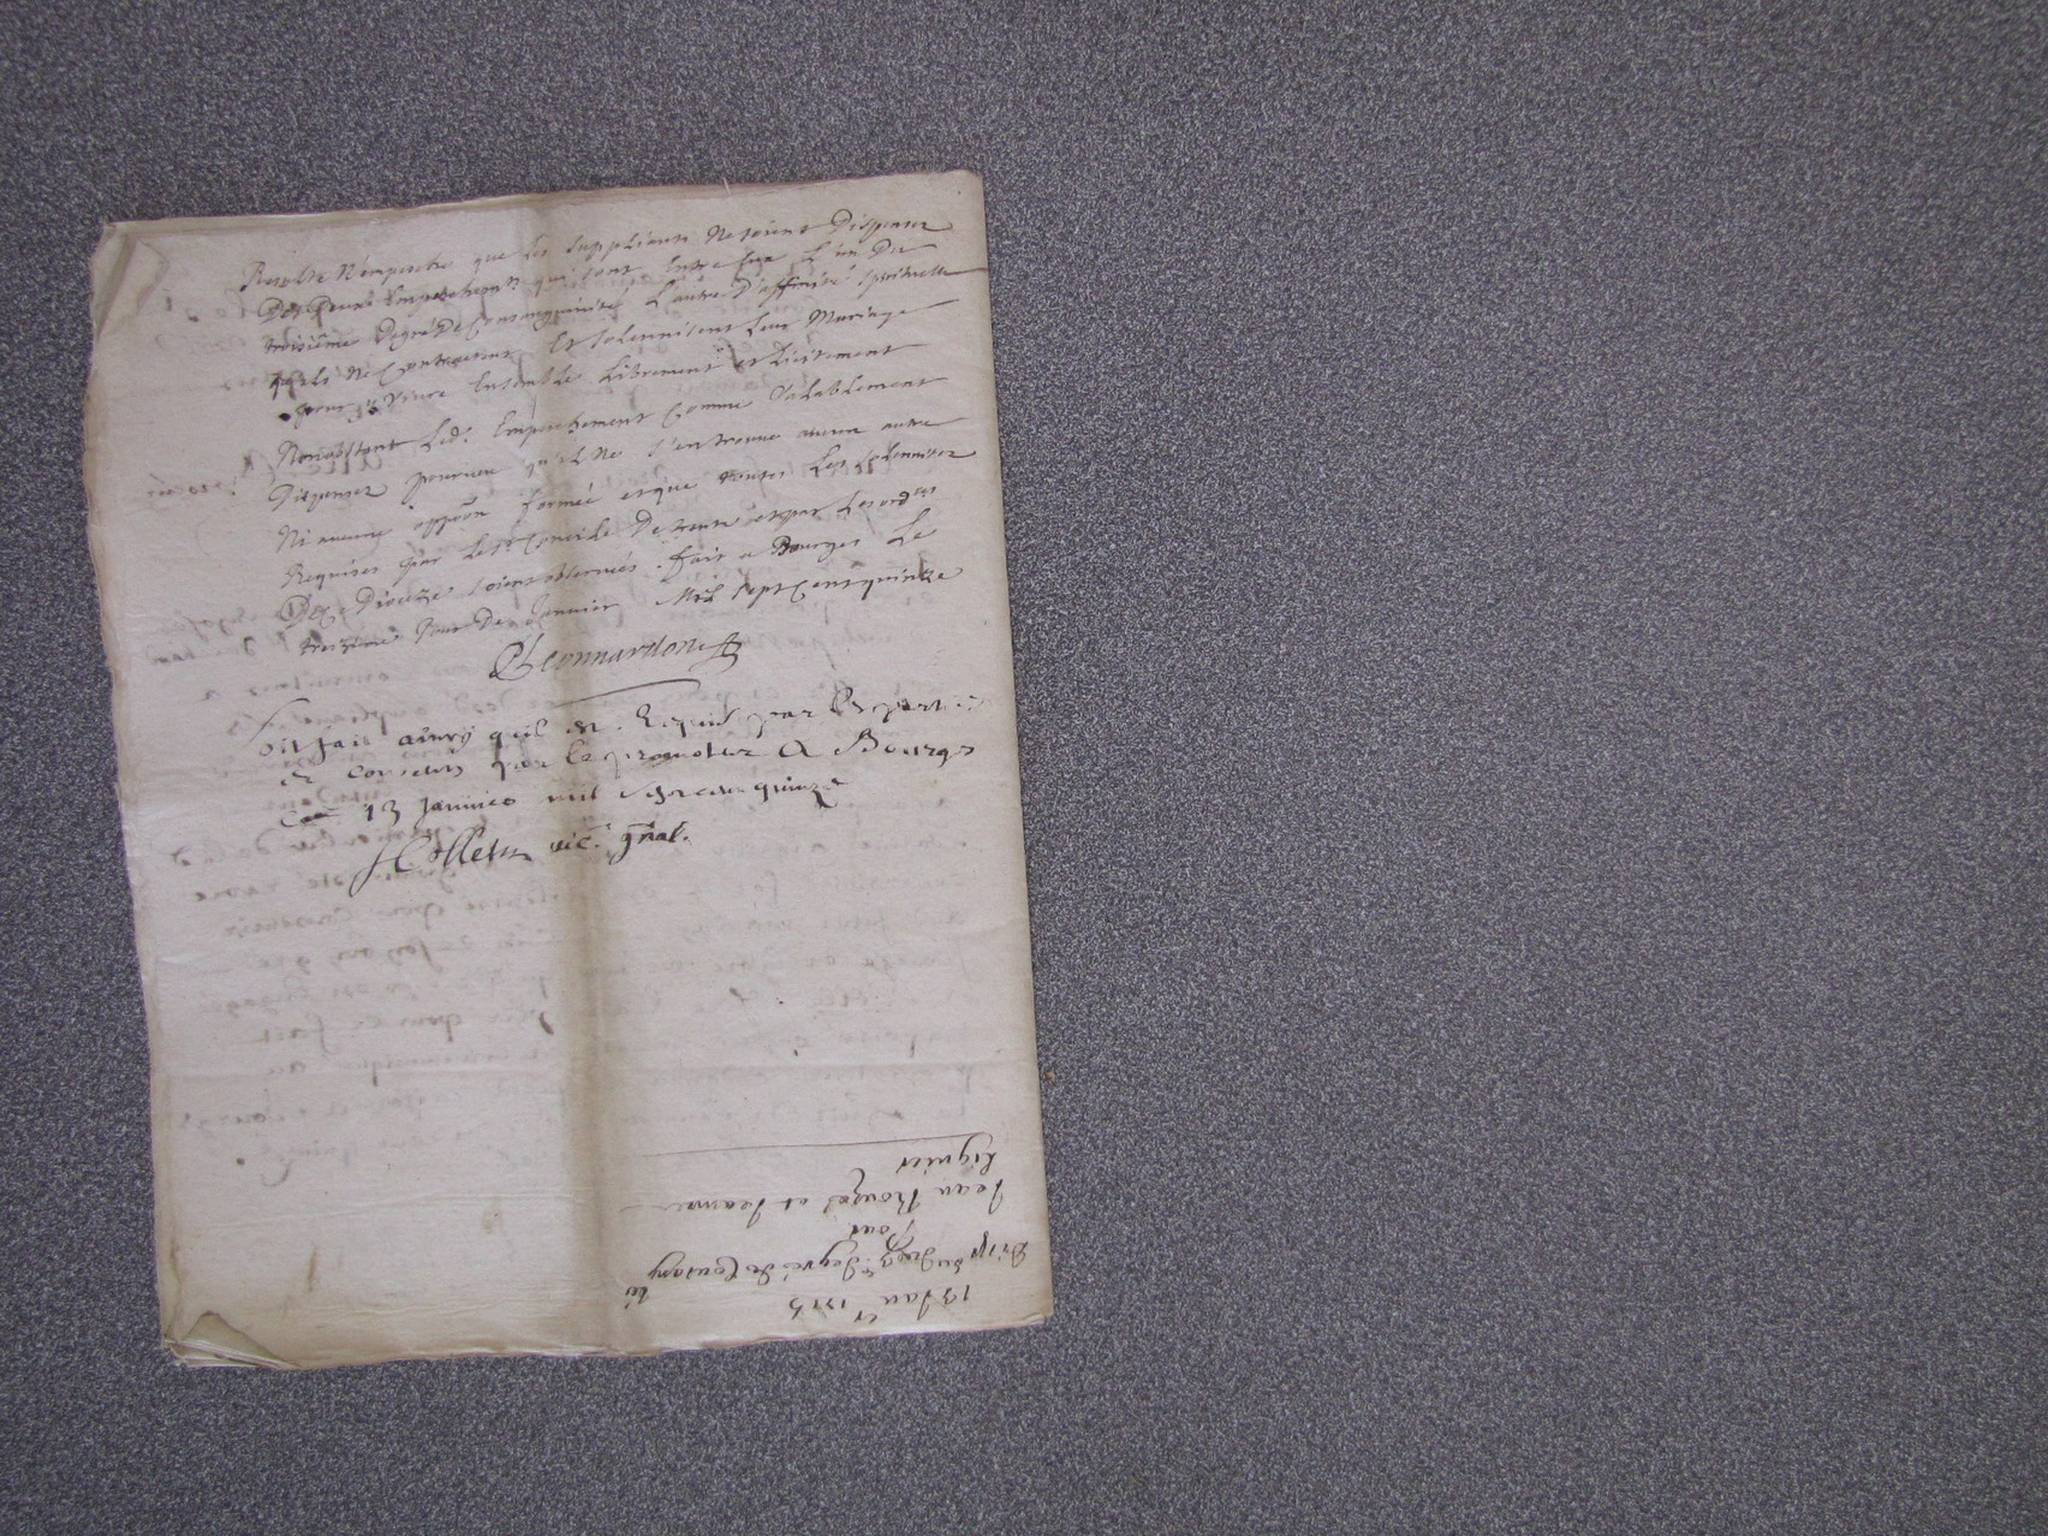 Resulte N'empesche que les suppliants ne soient Dispensez
Des Deux Empeschements qui sont Entre Eux L'un Du
troisiême Degré De Consanguinité L'autre D'affinité spirituelle
qu'ils ne Contractent Et solennisent Leur Mariage
pour y vivre Ensemble Librement et Licitement
Nonobstant Led. Empeschement Comme Valablement
Dispensez pourveu qu'il ne s'en trouve aucun autre
Ni aucune oppôn formée et que toutes Les solennitez
Requises par Le st Concile De trente et par Les ordces
De Ce Diocèze soient observées. fait a Bourges Le
treizième Jour De Janvier Mil sept Cent quinze
Leonnardon
Soit fait ainsy quil est Requis par les parties
et consenty par le promoteur A Bourges
Ce 13 Janvier mil sept cens quinze
Colletu vic. gnal.
13 Janer 1715
du degré de Consangté
pour
Jean Rouzé et Jeanne
Liguier